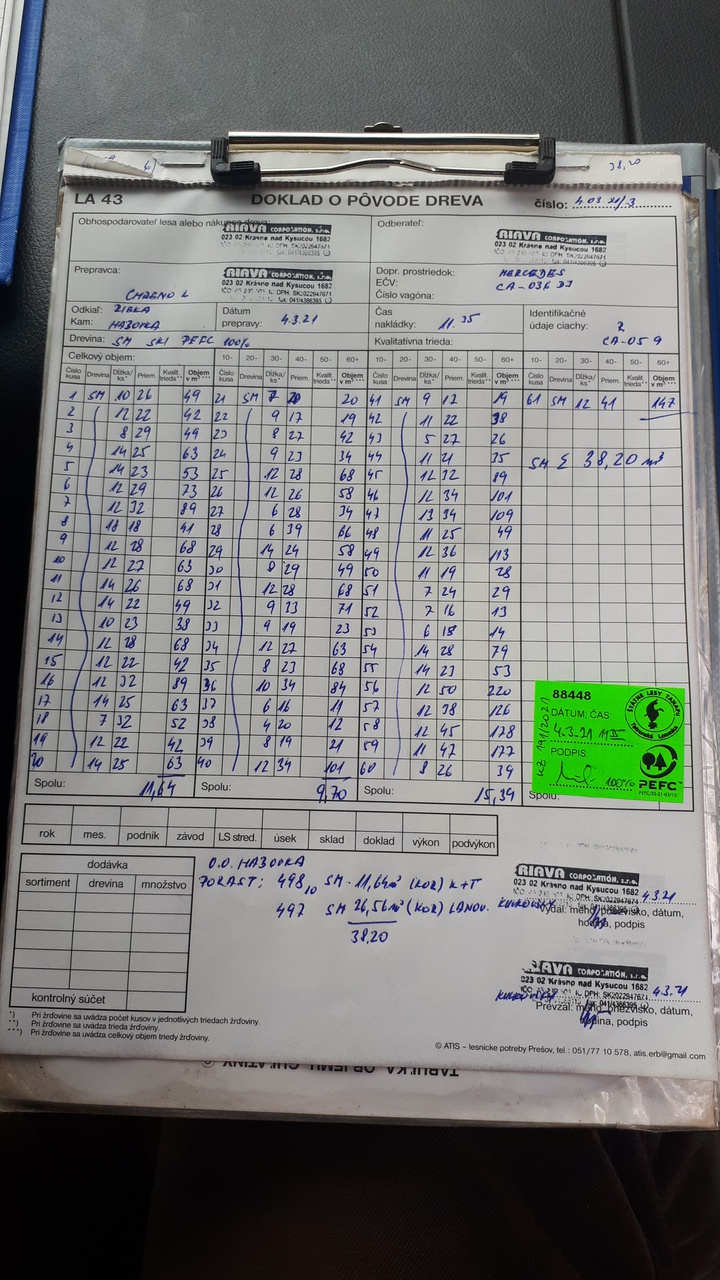 38,20
LA 43 DOKLAD O PÔVODE DREVA číslo: 4.03.21/3
Obhospodarovateľ lesa alebo nákupca dreva: RIAVA CORPORATION, s.r.o. Odberateľ: RIAVA CORPORATION, s.r.o.
023 02 Krásno nad Kysucou 1682 023 02 Krásno nad Kysucou 1682
Prepravca: RIAVA CORPORATION, s.r.o. Dopr. prostriedok: MERCEDES
023 02 Krásno nad Kysucou 1682 EČV: CA-036 DJ
Číslo vagóna:
Odkiaľ: Dátum Čas Identifikačné
Kam: HAZOVKA prepravy: 4.3.21 nakládky: 11.35 údaje ciachy: CA-059
Drevina: SM SKI PEFC 100% Kvalitatívna trieda:
Celkový objem: 10- 20- 30- 40- 50- 60+ 10- 20- 30- 40- 50- 60+ 10- 20- 30- 40- 50- 60+ 10- 20- 30- 40- 50- 60+
Číslo kusa Drevina Dĺžka/ks* Priem. Kvalit. trieda** Objem v m³*** Číslo kusa Drevina Dĺžka/ks* Priem. Kvalit. trieda** Objem v m³*** Číslo kusa Drevina Dĺžka/ks* Priem. Kvalit. trieda** Objem v m³*** Číslo kusa Drevina Dĺžka/ks* Priem. Kvalit. trieda** Objem v m³***
1 SM 10 26 49 21 SM 7 20 20 41 SM 9 17 19 61 SM 12 41 147
2 12 22 42 22 9 17 19 42 11 22 38
3 8 29 49 23 8 27 42 43 5 27 26
4 14 25 63 24 9 23 34 44 11 21 35 SM Σ 38,20 m³
5 14 23 53 25 12 28 68 45 12 32 89
6 12 29 73 26 12 26 58 46 12 34 101
7 12 32 89 27 6 28 34 47 13 34 109
8 18 18 41 28 6 39 66 48 11 25 49
9 12 28 68 29 14 24 58 49 12 36 113
10 12 27 63 30 8 29 49 50 11 19 28
11 14 26 68 31 12 28 68 51 7 24 29
12 14 22 49 32 9 33 71 52 7 16 13
13 10 23 38 33 9 19 23 53 6 18 14
14 12 28 68 34 12 27 63 54 14 28 79
15 12 22 42 35 8 23 68 55 14 23 53
16 12 32 89 36 10 34 84 56 12 50 220
17 14 25 63 37 6 16 11 57 12 38 126
18 7 32 52 38 4 20 12 58 12 45 178
19 12 22 42 39 8 19 21 59 11 47 177
20 14 25 63 40 12 34 101 60 8 26 39
Spolu: 11,64 Spolu: 9,70 Spolu: 15,39 Spolu:
88448
ŠTÁTNE LESY TANAPu
DÁTUM, ČAS:
4.3.21
PODPIS:
100%
PEFC
rok mes. podnik závod LS stred. úsek sklad doklad výkon podvýkon
dodávka
sortiment drevina množstvo
O.O. HAZOVKA
PORAST: 498 10 SM - 11,64 m³ (KOR) K+T
497 SM 26,56 m³ (KOR) LANOV.
38,20
RIAVA CORPORATION, s.r.o.
023 02 Krásno nad Kysucou 1682
4.3.21
Vydal: meno, priezvisko, dátum,
hodina, podpis
RIAVA CORPORATION, s.r.o.
023 02 Krásno nad Kysucou 1682
4.3.21
Prevzal: meno, priezvisko, dátum,
hodina, podpis
kontrolný súčet
*) Pri žrďovine sa uvádza počet kusov v jednotlivých triedach žrďoviny.
**) Pri žrďovine sa uvádza trieda žrďoviny.
***) Pri žrďovine sa uvádza celkový objem triedy žrďoviny.
© ATIS – lesnícke potreby Prešov, tel.: 051/77 10 578, atis.erb@gmail.com
TABUĽKA OBJEMU GUĽATINY